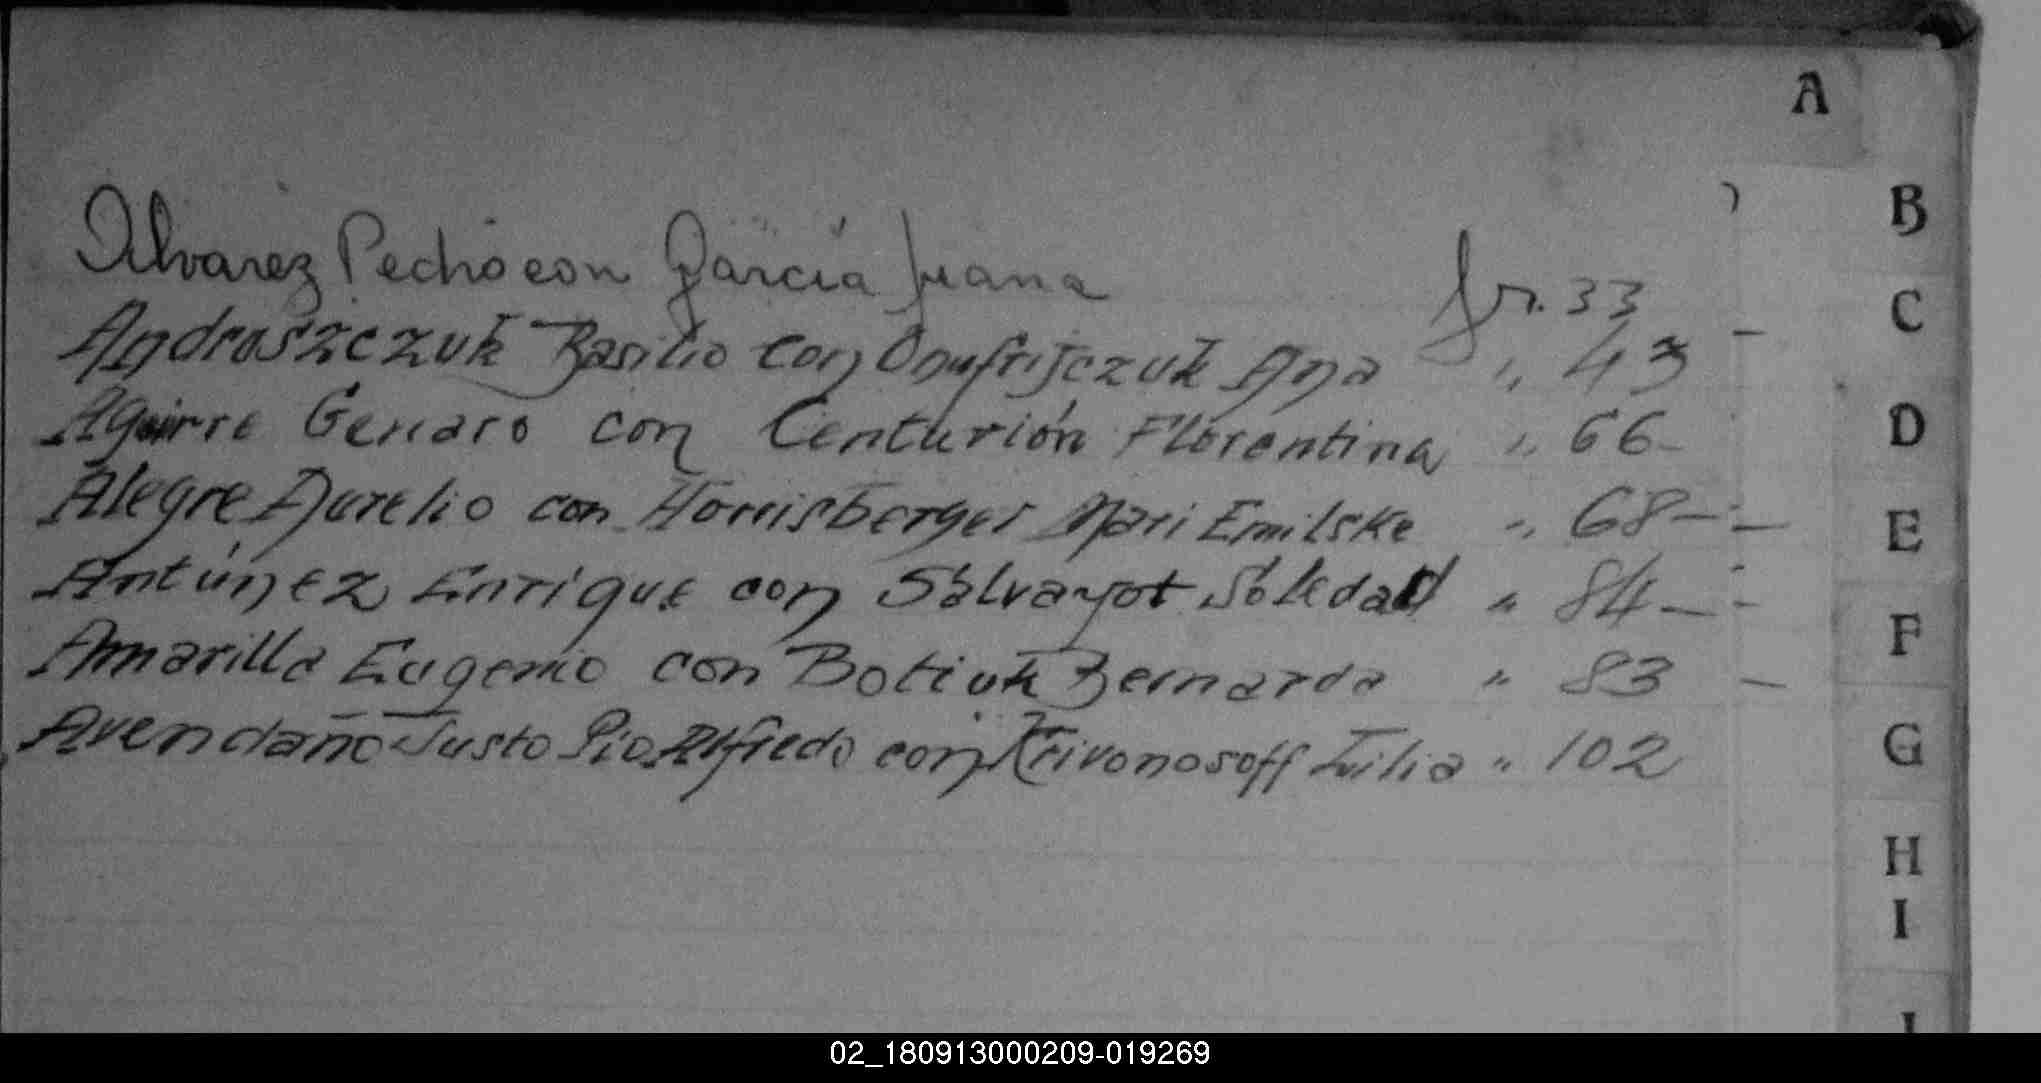 A
Alvarez Pedro con García Juana fs. 33
B
C
Androszczuk Basilio con Onufrijczuk Ana " 43
Aguirre Genaro con Centurión Florentina " 66-
D
Alegre Aurelio con Horrisberger Mari Emilske " 68-
E
Antúnez Enrique con Salvayot Soledad " 84-
F
Amarilla Eugenio con Botiuk Bernarda " 83
Avendaño Justo Pio Alfredo con Krivonosoff Lilia " 102
G
H
I
J
02_180913000209-019269